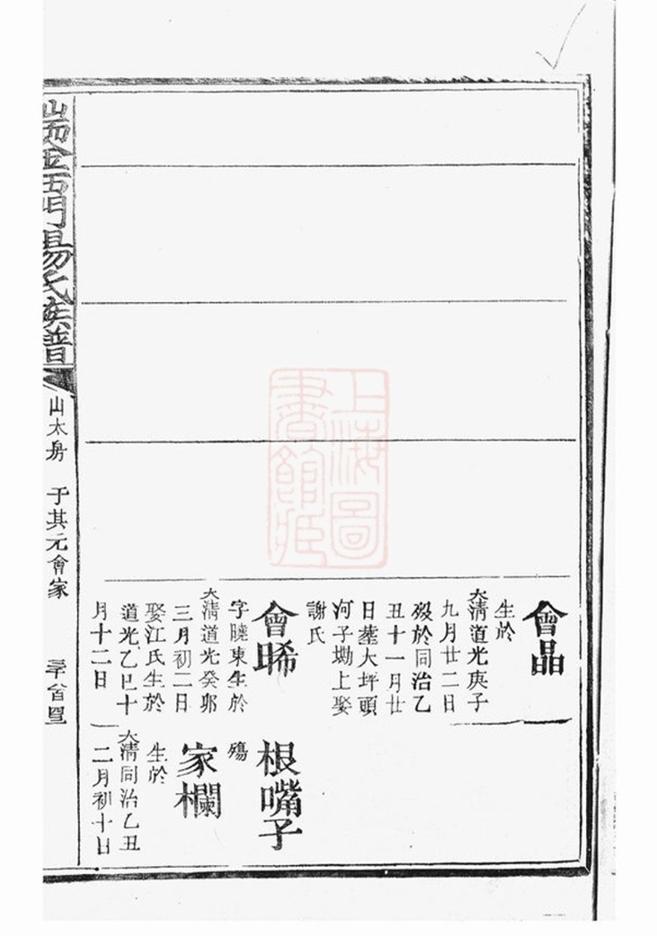 會晶
生於
大清道光庚子
九月廿二日
殁於同治乙
丑十一月廿
日葬大坪頭
河子坳上娶
謝氏
會晞
字曉東生於
大清道光癸卯
三月初二日
娶江氏生於
道光乙巳十
月十二日
根嘴子
殤
家欄
生於
大清同治乙丑
二月初十日
瑞金西門楊氏族譜
山太房 于其元會家
上海圖
書館藏